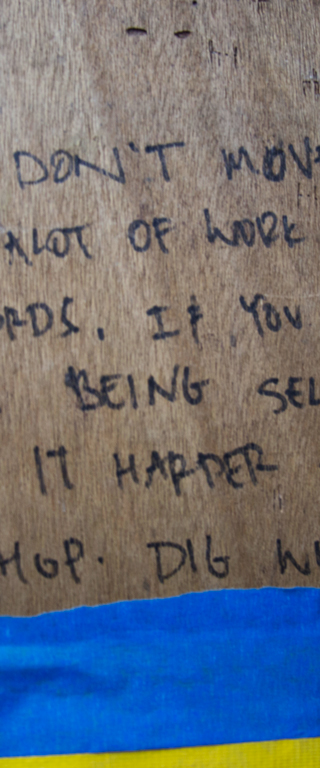 DON'T MOV
ALOT OF WORK
RDS. IF YOU
BEING SEL
IT HARDER
DIG